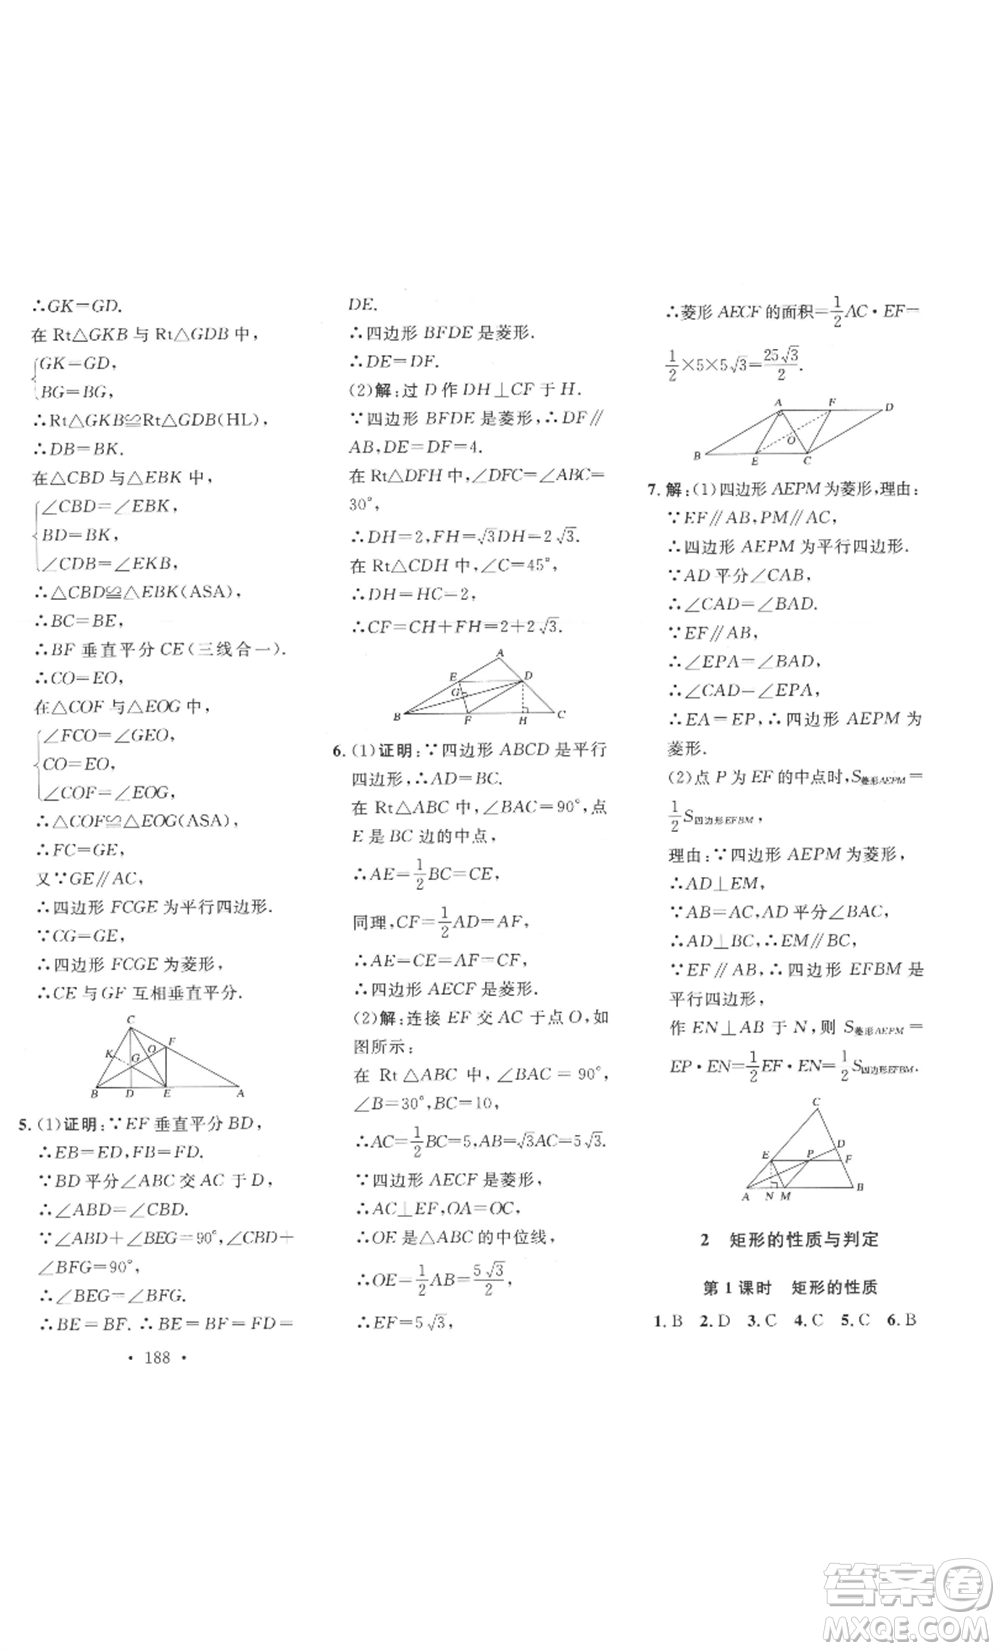 ∴GK=GD.
在 Rt△GKB 与 Rt△GDB 中,
GK=GD,
BG=BG,
∴Rt△GKB≌Rt△GDB(HL),
∴DB=BK.
在△CBD 与△EBK 中,
∠CBD=∠EBK,
BD=BK,
∠CDB=∠EKB,
∴△CBD≌△EBK(ASA),
∴BC=BE,
∴BF 垂直平分 CE(三线合一).
∴CO=EO,
在△COF 与△EOG 中,
∠FCO=∠GEO,
CO=EO,
∠COF=∠EOG,
∴△COF≌△EOG(ASA),
∴FC=GE,
又∵GE∥AC,
∴四边形 FCGE 为平行四边形.
∵CG=GE,
∴四边形 FCGE 为菱形,
∴CE 与 GF 互相垂直平分.
C
K O F
G
B D E A
5. (1)证明:∵EF 垂直平分 BD,
∴EB=ED,FB=FD.
∵BD 平分∠ABC 交 AC 于 D,
∴∠ABD=∠CBD.
∵∠ABD+∠BEG=90°,∠CBD+
∠BFG=90°,
∴∠BEG=∠BFG.
∴BE=BF. ∴BE=BF=FD=
• 188 •
DE.
∴四边形 BFDE 是菱形.
∴DE=DF.
(2)解:过 D 作 DH⊥CF 于 H.
∵四边形 BFDE 是菱形,∴DF∥
AB,DE=DF=4.
在 Rt△DFH 中,∠DFC=∠ABC=
30°,
∴DH=2,FH=√3DH=2√3.
在 Rt△CDH 中,∠C=45°,
∴DH=HC=2,
∴CF=CH+FH=2+2√3.
A
E D
G
B F H C
6. (1)证明:∵四边形 ABCD 是平行
四边形,∴AD=BC.
在 Rt△ABC 中,∠BAC=90°,点
E 是 BC 边的中点,
∴AE=1/2BC=CE,
同理,CF=1/2AD=AF,
∴AE=CE=AF=CF.
∴四边形 AECF 是菱形.
(2)解:连接 EF 交 AC 于点 O,如
图所示:
在 Rt△ABC 中,∠BAC=90°,
∠B=30°,BC=10,
∴AC=1/2BC=5,AB=√3AC=5√3.
∵四边形 AECF 是菱形,
∴AC⊥EF,OA=OC,
∴OE 是△ABC 的中位线,
∴OE=1/2AB=5√3/2,
∴EF=5√3,
∴菱形 AECF 的面积=1/2AC·EF=
1/2×5×5√3=25√3/2.
A F D
O
B E C
7. 解:(1)四边形 AEPM 为菱形,理由:
∵EF∥AB,PM∥AC,
∴四边形 AEPM 为平行四边形.
∵AD 平分∠CAB,
∴∠CAD=∠BAD.
∵EF∥AB,
∴∠EPA=∠BAD,
∴∠CAD=∠EPA,
∴EA=EP,∴四边形 AEPM 为
菱形.
(2)点 P 为 EF 的中点时,S菱形AEPM=
1/2S四边形EFBM,
理由:∵四边形 AEPM 为菱形,
∴AD⊥EM,
∵AB=AC,AD 平分∠BAC,
∴AD⊥BC,∴EM∥BC,
∵EF∥AB,∴四边形 EFBM 是
平行四边形,
作 EN⊥AB 于 N,则 S菱形AEPM=
EP·EN=1/2EF·EN=1/2S四边形EFBM.
C
D
E P F
A N M B
2 矩形的性质与判定
第 1 课时 矩形的性质
1. B 2. D 3. C 4. C 5. C 6. B
答案卷
MXQE.COM